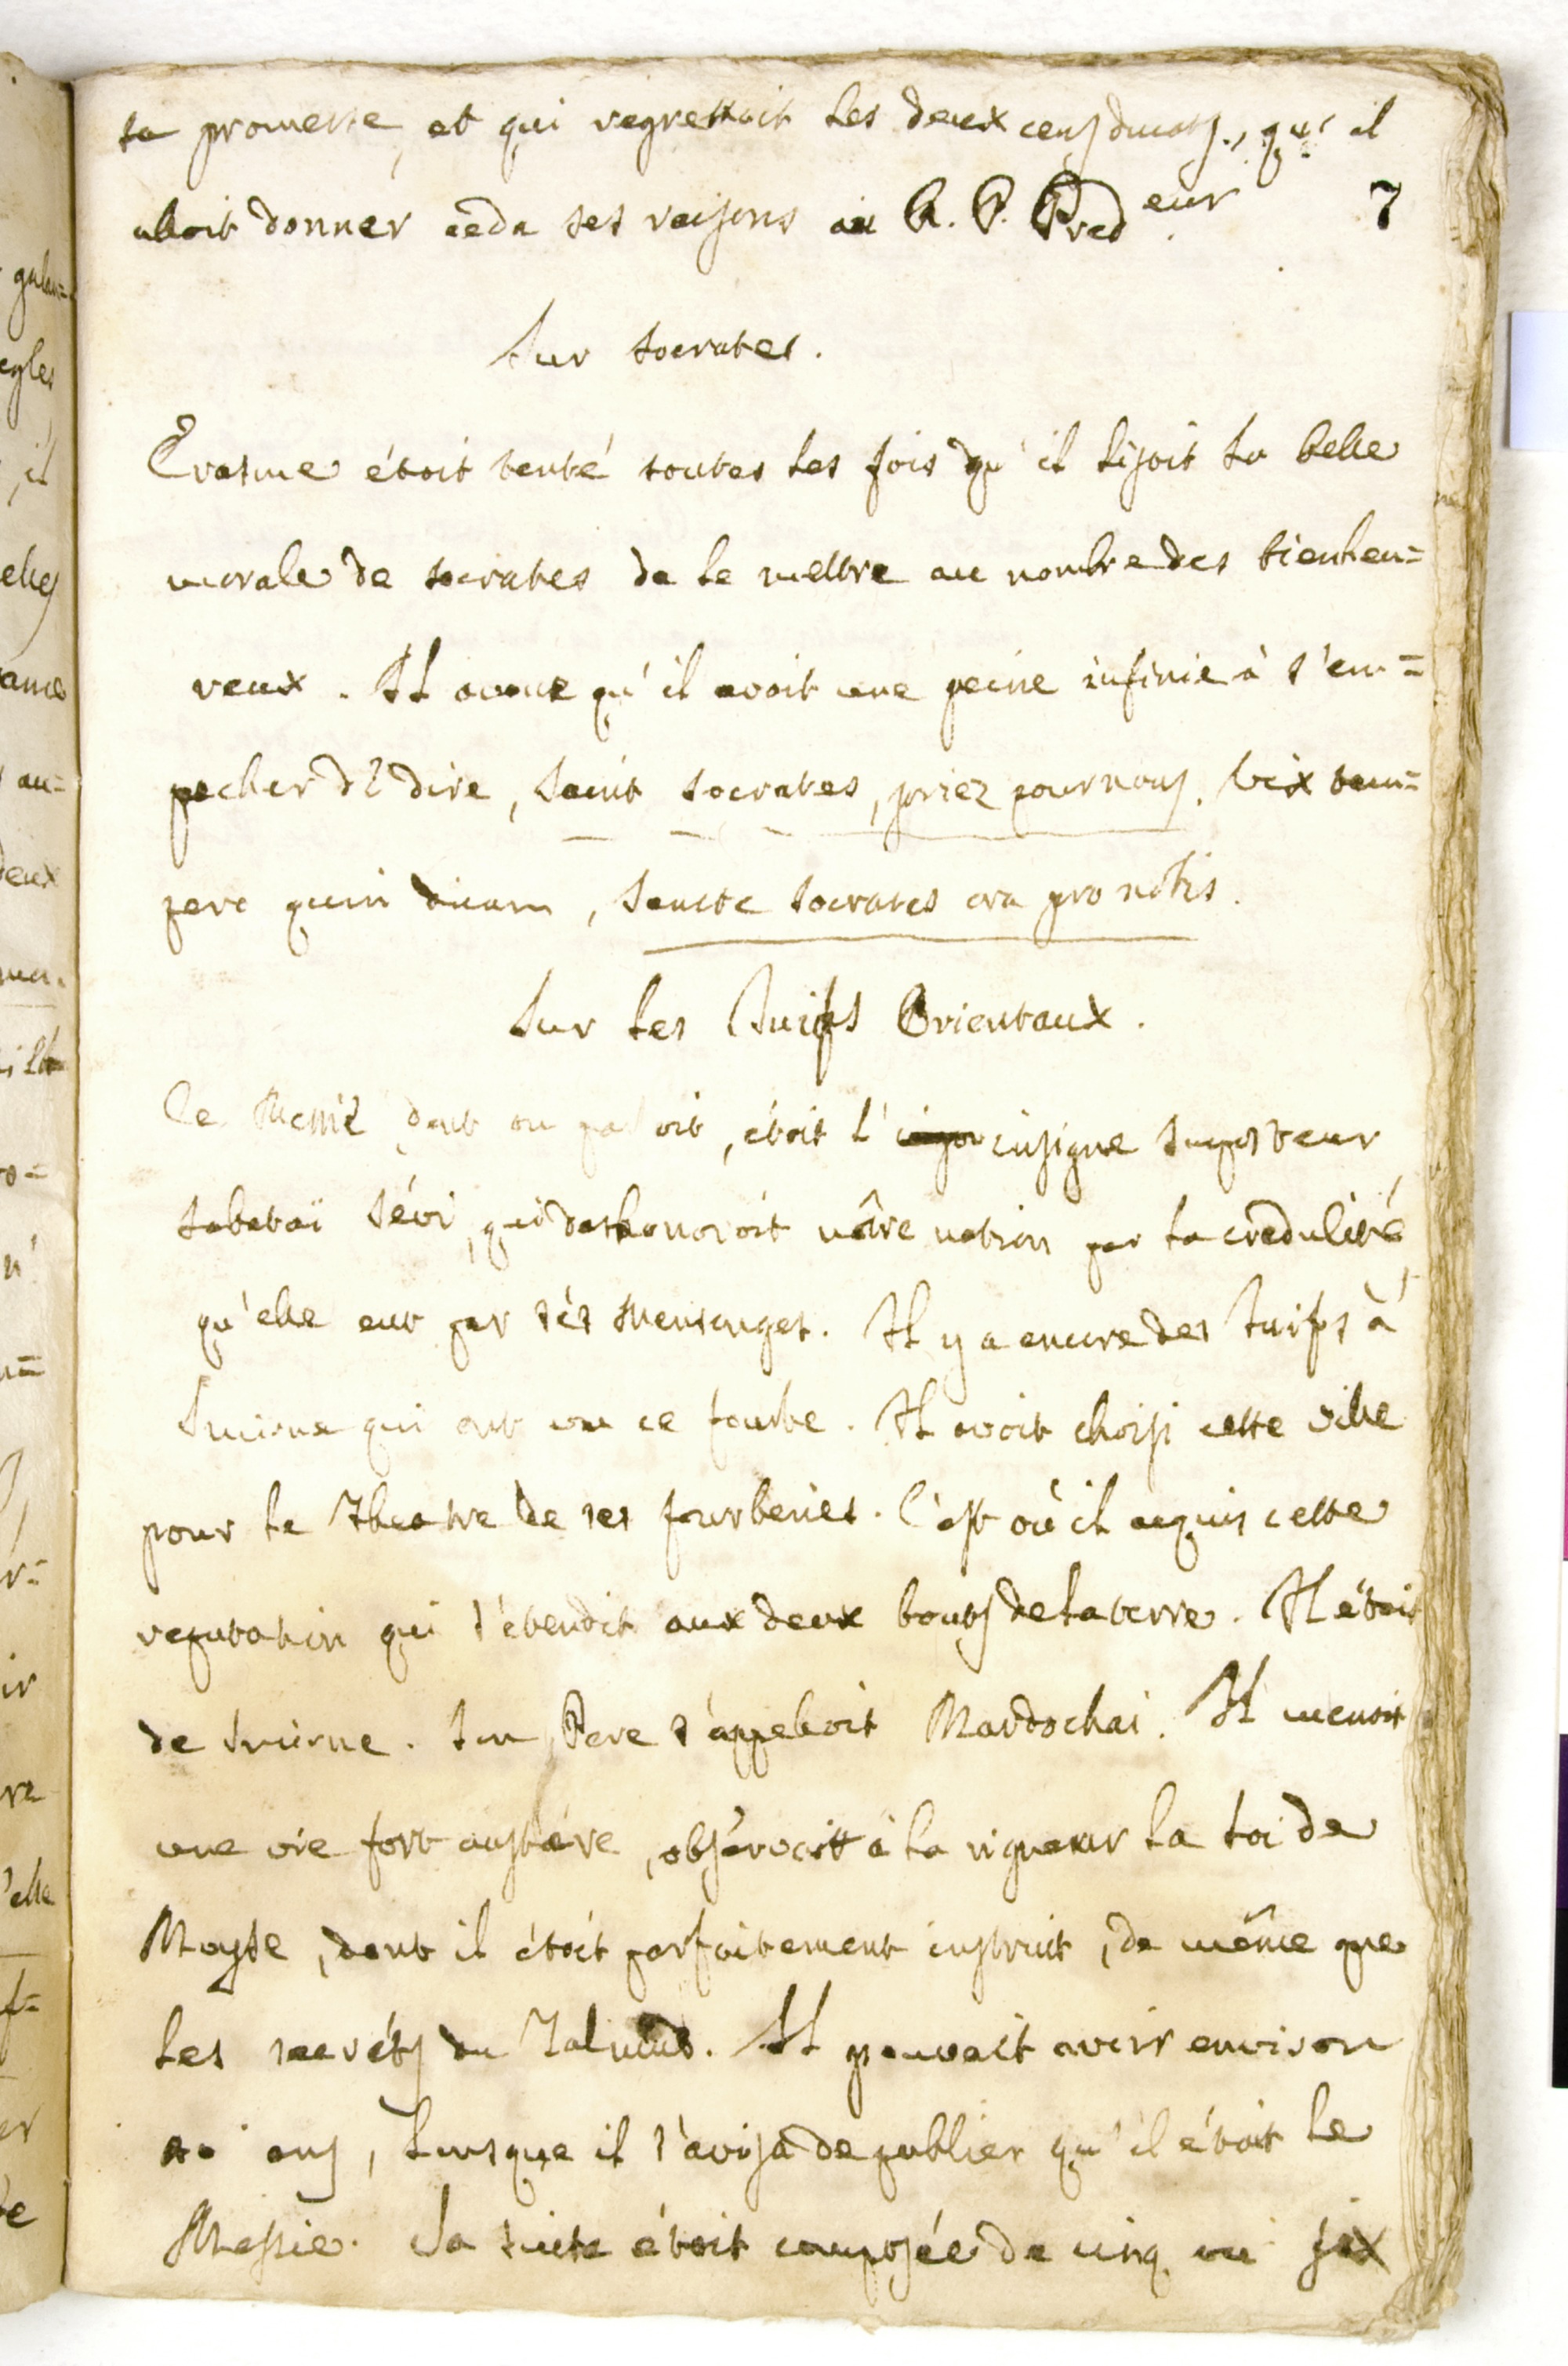 sa promesse, et qui regrettoit les deux cens ducats, qu' il
alloit donner ceda ses raisons au R. P. Pred.eur
7
Sur Socrates.
Erasme étoit tenté toutes les fois qu' il lisoit la belle
morale de Socrates de le mettre au nombre des bienheu=
reux. Il avoue qu' il avoit une peine infinie à s'em=
pecher de dire, Saint Socrates, priez pour nous. Vix tem=
pero quin dicam, Sancte Socrates ora pro nobis.
Sur les Juifs Orientaux.
Ce Messie dont on parloit, étoit l' insigne Imposteur
Sabataï Sévi, qui deshonoroit nôtre nation par la credulité
qu'elle eut par ses Mensonges. Il y a encore des Juifs à
Smirne qui ont vu ce fourbe. Il avoit choisi cette ville
pour le Theatre de ses fourberies. C'est où il acquis cette
reputation qui s'étendit aux deux bouts de la terre. Il étoit
de Smirne. Son Pere s'appelloit Mardochai. Il menoit
une vie fort austère, observoit à la rigueur la loi de
Moyse, dont il étoit parfaitement instruit, de même que
les secréts du Talmud. Il pouvoit avoir environ
ans, lorsque il s'avisa de publier qu'il étoit le
Messie. Sa suite étoit composée de cinq ou six